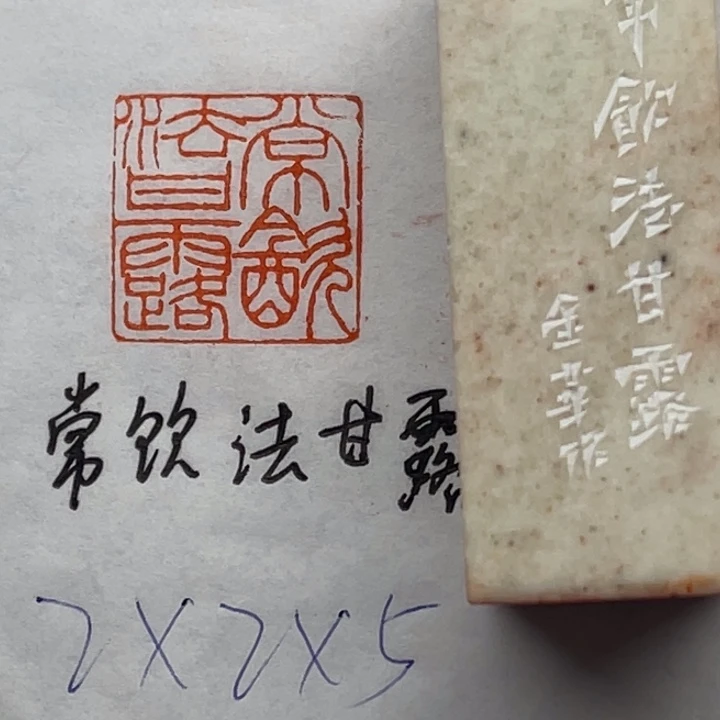 常飲
法甘露
常饮法甘露
2X2X5
常飲法甘露
金華作